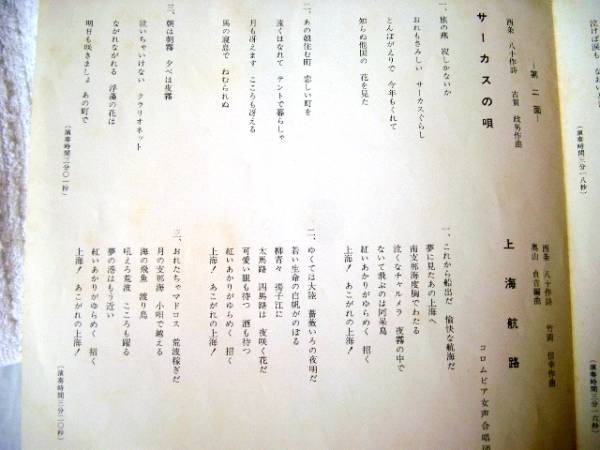 泣けば涙も
（演奏時間三分一八秒）
―第二面―
西条 八十作詩 古賀 政男作曲
サーカスの唄
一、旅の燕 寂しかないか
おれもさみしい サーカスぐらし
とんぼがえりで 今年もくれて
知らぬ他国の 花を見た
二、あの娘住む町 恋しい町を
遠くはなれて テントで暮らしゃ
月も冴えます こころも冴える
馬の寝息で ねむられぬ
三、朝は朝霧 夕べは夜霧
泣いちゃいけない クラリオネット
ながれながれる 浮藻の花は
明日も咲きましょ あの町で
（演奏時間三分〇一秒）
（演奏時間三分一六秒）
西条 八十作詩 竹岡 信幸作曲
奥山 貞吉編曲
上海航路
コロムビア女声合唱団
一、これから船出だ 愉快な航海だ
夢に見たあの上海へ
南支那海度胸でわたる
泣くなチャルメラ 夜霧の中で
ないて飛ぶのは阿呆鳥
紅いあかりがゆらめく 招く
上海！ あこがれの上海！
二、ゆくては大陸 薔薇いろの夜明だ
若い生命の白帆がのぼる
柳青々 揚子江に
大馬路 四馬路は 夜咲く花だ
可愛い瞳も待つ 酒も待つ
紅いあかりがゆらめく 招く
上海！ あこがれの上海！
三、おれたちゃマドロス 荒波稼ぎだ
月の支那海 小唄で越える
海の飛魚 渡り鳥
吼えろ荒波 こころも躍る
夢の港はもう近い
紅いあかりがゆらめく 招く
上海！ あこがれの上海！
（演奏時間三分二〇秒）